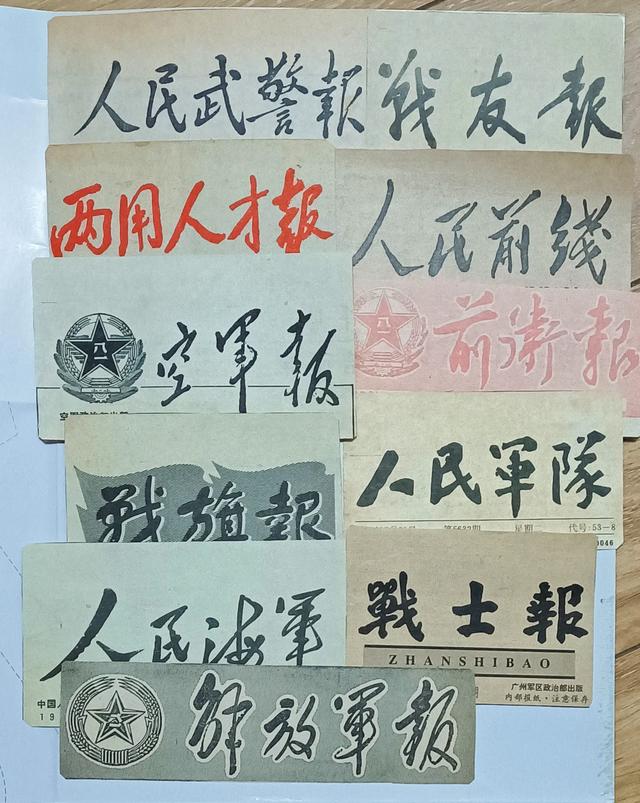 人民武警報
戰友報
两用人才報
人民前綫
空軍報
前衛報
人民軍隊
第5632期 星期 代号:53—8
0046
战旗報
人民海軍
中国人
19
戰士報
ZHANSHIBAO
期
广州军区政治部出版
内部报纸·注意保存
解放軍報